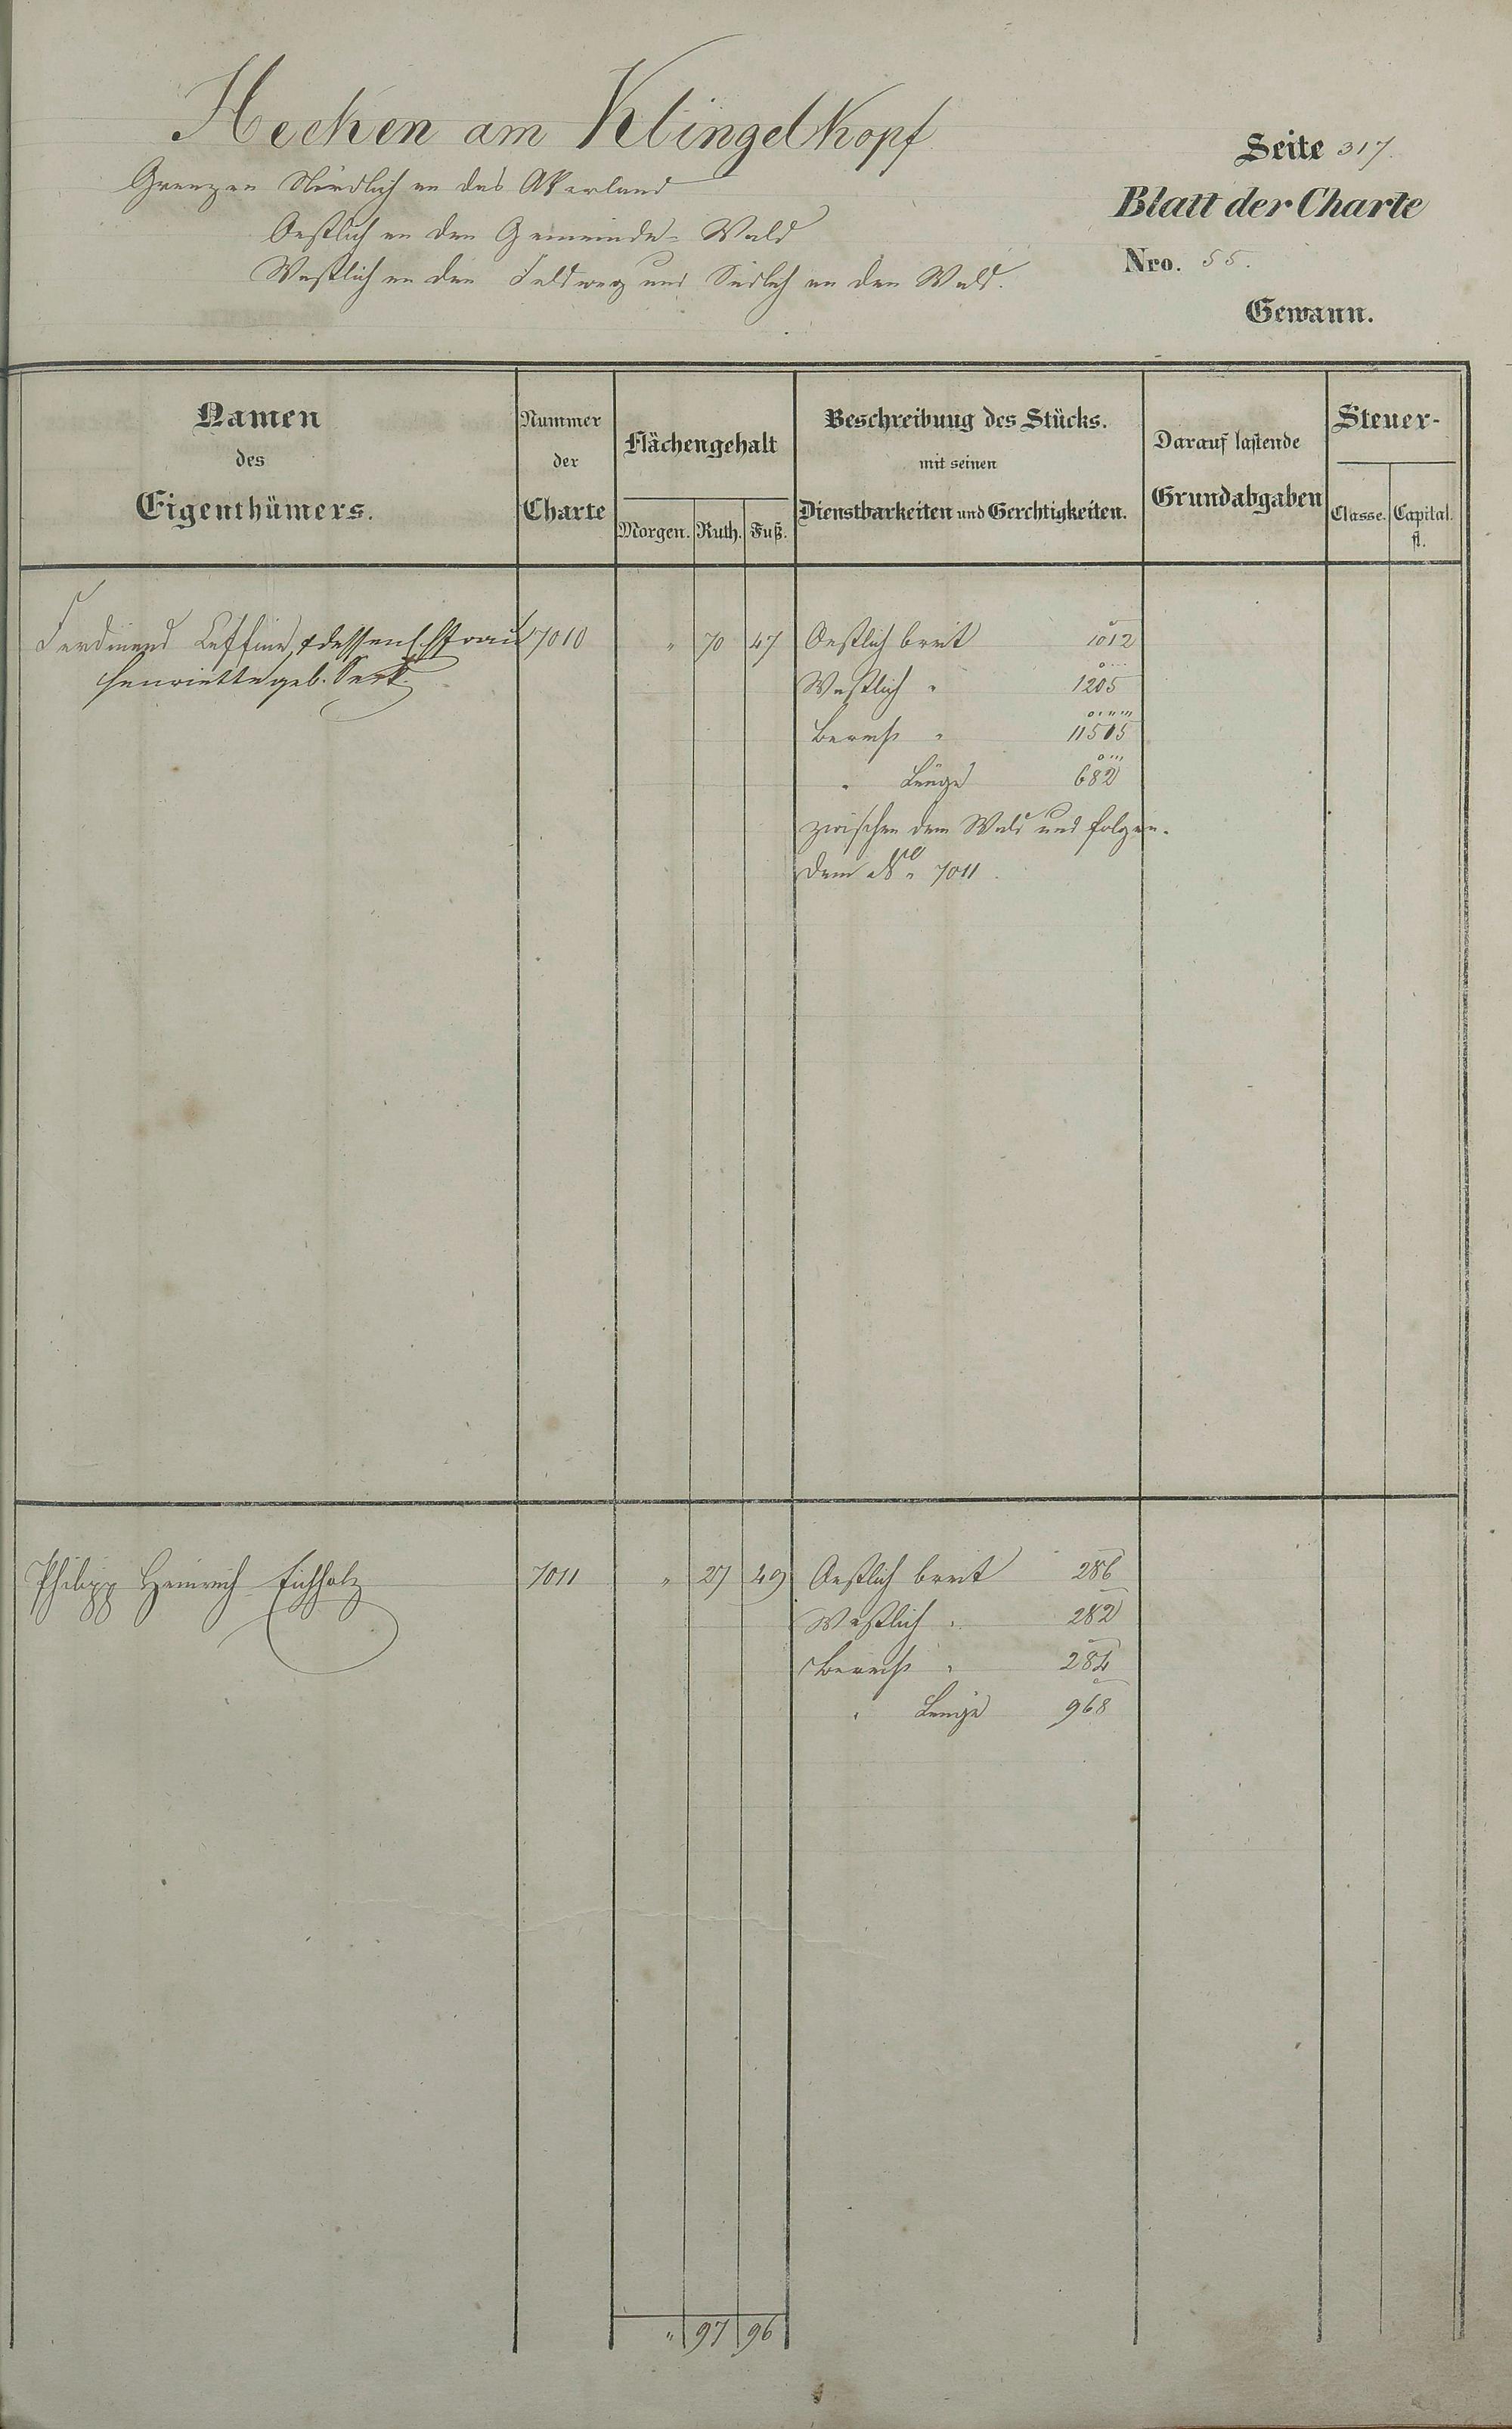 Hecken am Klingelkopf
Seite 317.
Grenzen Nördlich an das Akerland
Blatt der Charte
Oestlich an den Gemeinde-Wald
Westlich an den Feldweg und Südlich an den Wald.
Nro. 55.
Gewann.
Namen des Eigenthümers.
Nummer der Charte
Flächengehalt
Morgen. Ruth. Fuß.
Beschreibung des Stücks.
mit seinen
Dienstbarkeiten und Gerechtigkeiten.
Darauf lastende
Grundabgaben
Steuer-
Classe. Capital.
fl.
Ferdinand dessen Ehefrau 7010 " 70 47 Oestlich breit 1012
Henriette geb. Westlich " 1205
Berechs " 11505
" Länge 682
zwischen dem Wald und folgen-
dem No. 7011.
Philipp Heinrich Eichholz 7011 " 27 49 Oestlich breit 286
Westlich " 282
Berechs " 284
" Länge 968
" 97 96